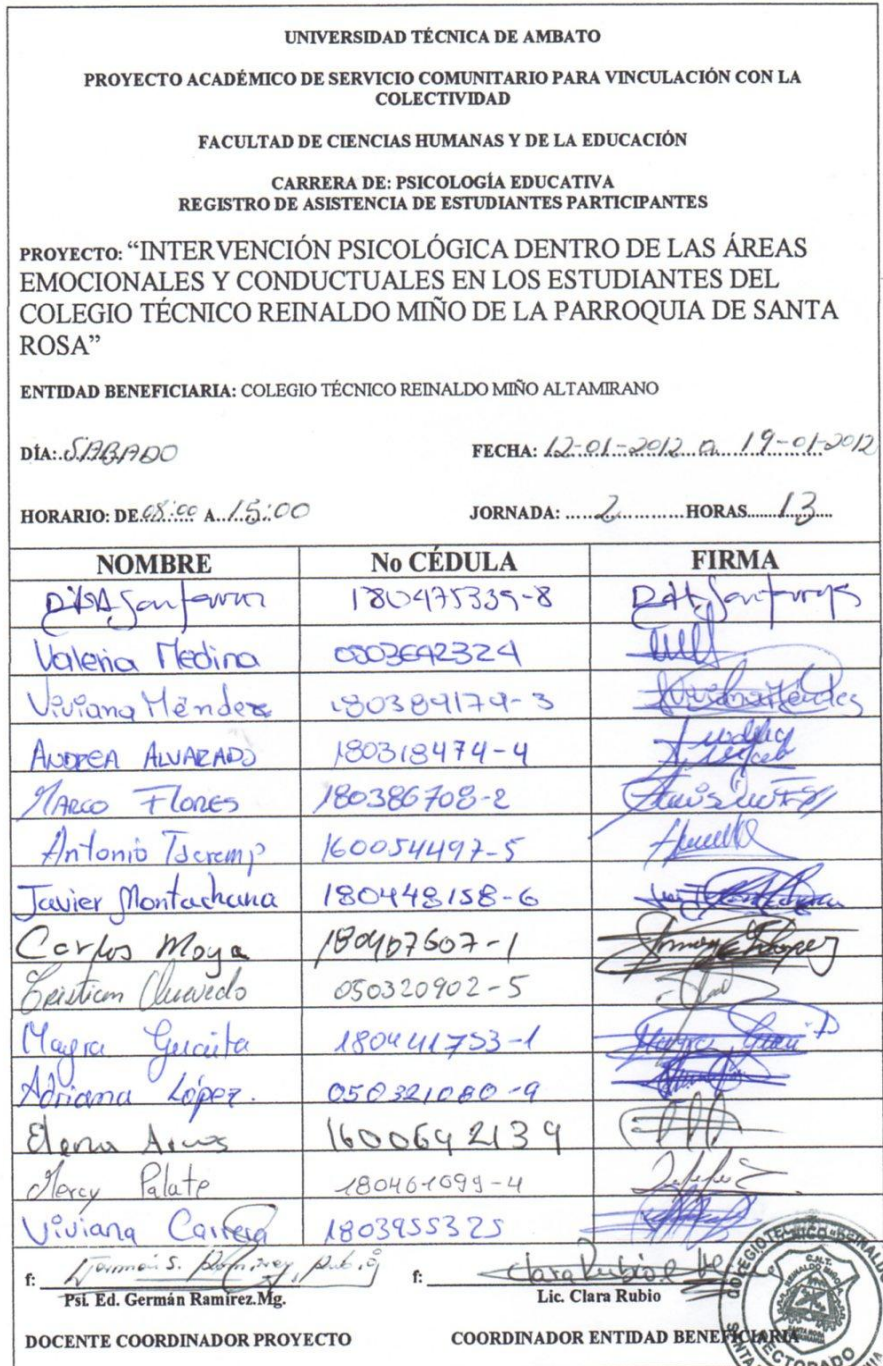 UNIVERSIDAD TÉCNICA DE AMBATO
PROYECTO ACADÉMICO DE SERVICIO COMUNITARIO PARA VINCULACIÓN CON LA
COLECTIVIDAD
FACULTAD DE CIENCIAS HUMANAS Y DE LA EDUCACIÓN
CARRERA DE: PSICOLOGÍA EDUCATIVA
REGISTRO DE ASISTENCIA DE ESTUDIANTES PARTICIPANTES
PROYECTO: “INTERVENCIÓN PSICOLÓGICA DENTRO DE LAS ÁREAS
EMOCIONALES Y CONDUCTUALES EN LOS ESTUDIANTES DEL
COLEGIO TÉCNICO REINALDO MIÑO DE LA PARROQUIA DE SANTA
ROSA”
ENTIDAD BENEFICIARIA: COLEGIO TÉCNICO REINALDO MIÑO ALTAMIRANO
DÍA: SABADO FECHA: 12-01-2012 a 19-01-2012
HORARIO: DE 08:00 A 15:00 JORNADA: 2 HORAS 13
NOMBRE No CÉDULA FIRMA
180475339-8
Valeria Medina 0503642324
Viviana Méndez 180389179-3 Viviana Méndez
ANDREA ALVARADO 180318474-4
MARCO FLORES 180386708-2
Antonio 160054497-5
Javier Montachana 180448158-6
Carlos Moya 180407607-1
Cristian Quevedo 050320902-5
Mayra Guaita 180441753-1 Mayra
Adriana López. 050321080-9
Elena 1600642139
Mercy Palate 180461099-4
Viviana Carrera 1803955325
f: f: Clara Rubio
Psi. Ed. Germán Ramírez.Mg. Lic. Clara Rubio
DOCENTE COORDINADOR PROYECTO COORDINADOR ENTIDAD BENEFICIARIA